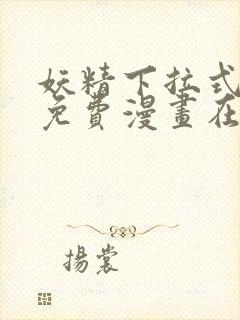 妖精下拉式
免費漫畫在
揚裳